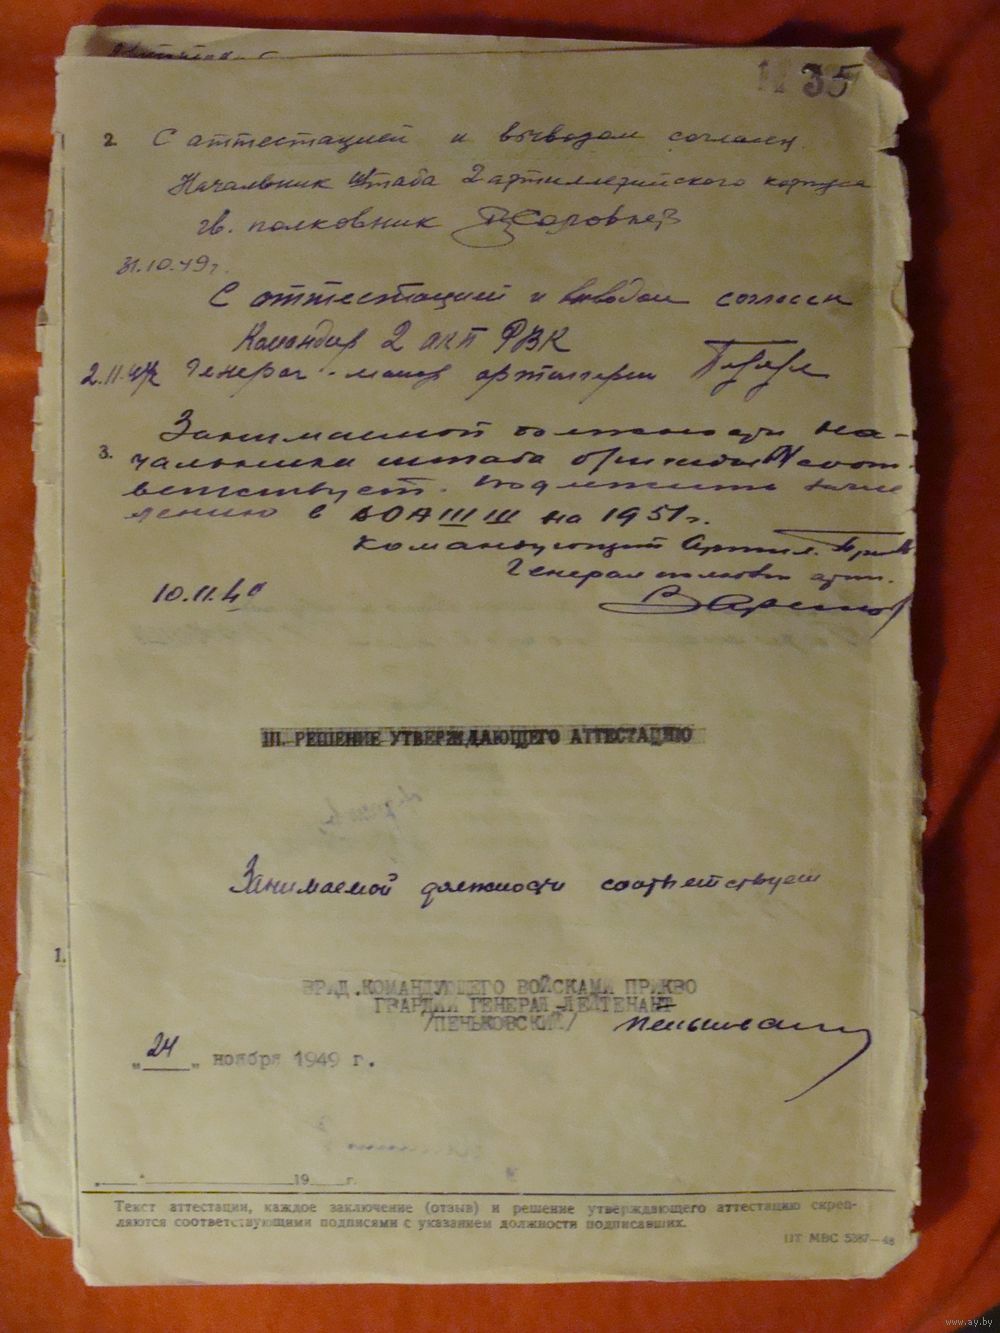 35
2. С аттестацией и выводом согласен.
Начальник штаба 2 артиллерийского корпуса
гв. полковник
31.10.49г.
С аттестацией и выводом согласен
Командир 2 акп РВК
2.11.49 Генерал-майор артиллерии
3. Занимаемой должности на-
чальника штаба бригады соот-
ветствует. Подлежит зачис
лению в на 1951г.
Командующий Артил.
Генерал полковн арт.
10.11.49
III. РЕШЕНИЕ УТВЕРЖДАЮЩЕГО АТТЕСТАЦИЮ
Занимаемой должности соответствует
1.
ВРИД.КОМАНДУЮЩЕГО ВОЙСКАМИ ПРИКВО
ГВАРДИИ ГЕНЕРАЛ-ЛЕЙТЕНАНТ
/ПЕНЬКОВСКИЙ/ Пеньковский
„ 24 „ ноября 1949 г.
„ “ 19 г.
Текст аттестации, каждое заключение (отзыв) и решение утверждающего аттестацию скреп-
ляются соответствующими подписями с указанием должности подписавших.
ПТ МВС 5387—48
www.ay.by